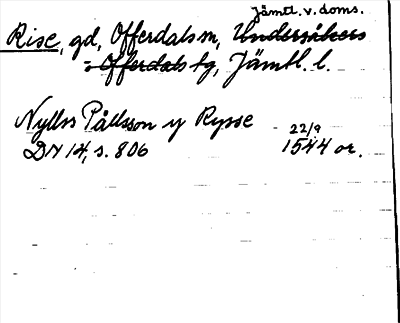 Jämtl. v. doms.
Rise, gd, Offerdals sn, Undersåkers
: Offerdals tg, Jämtl. l.
Nylss Pålsson y Rysse 22/9
DN 14, s. 806 1544 or.